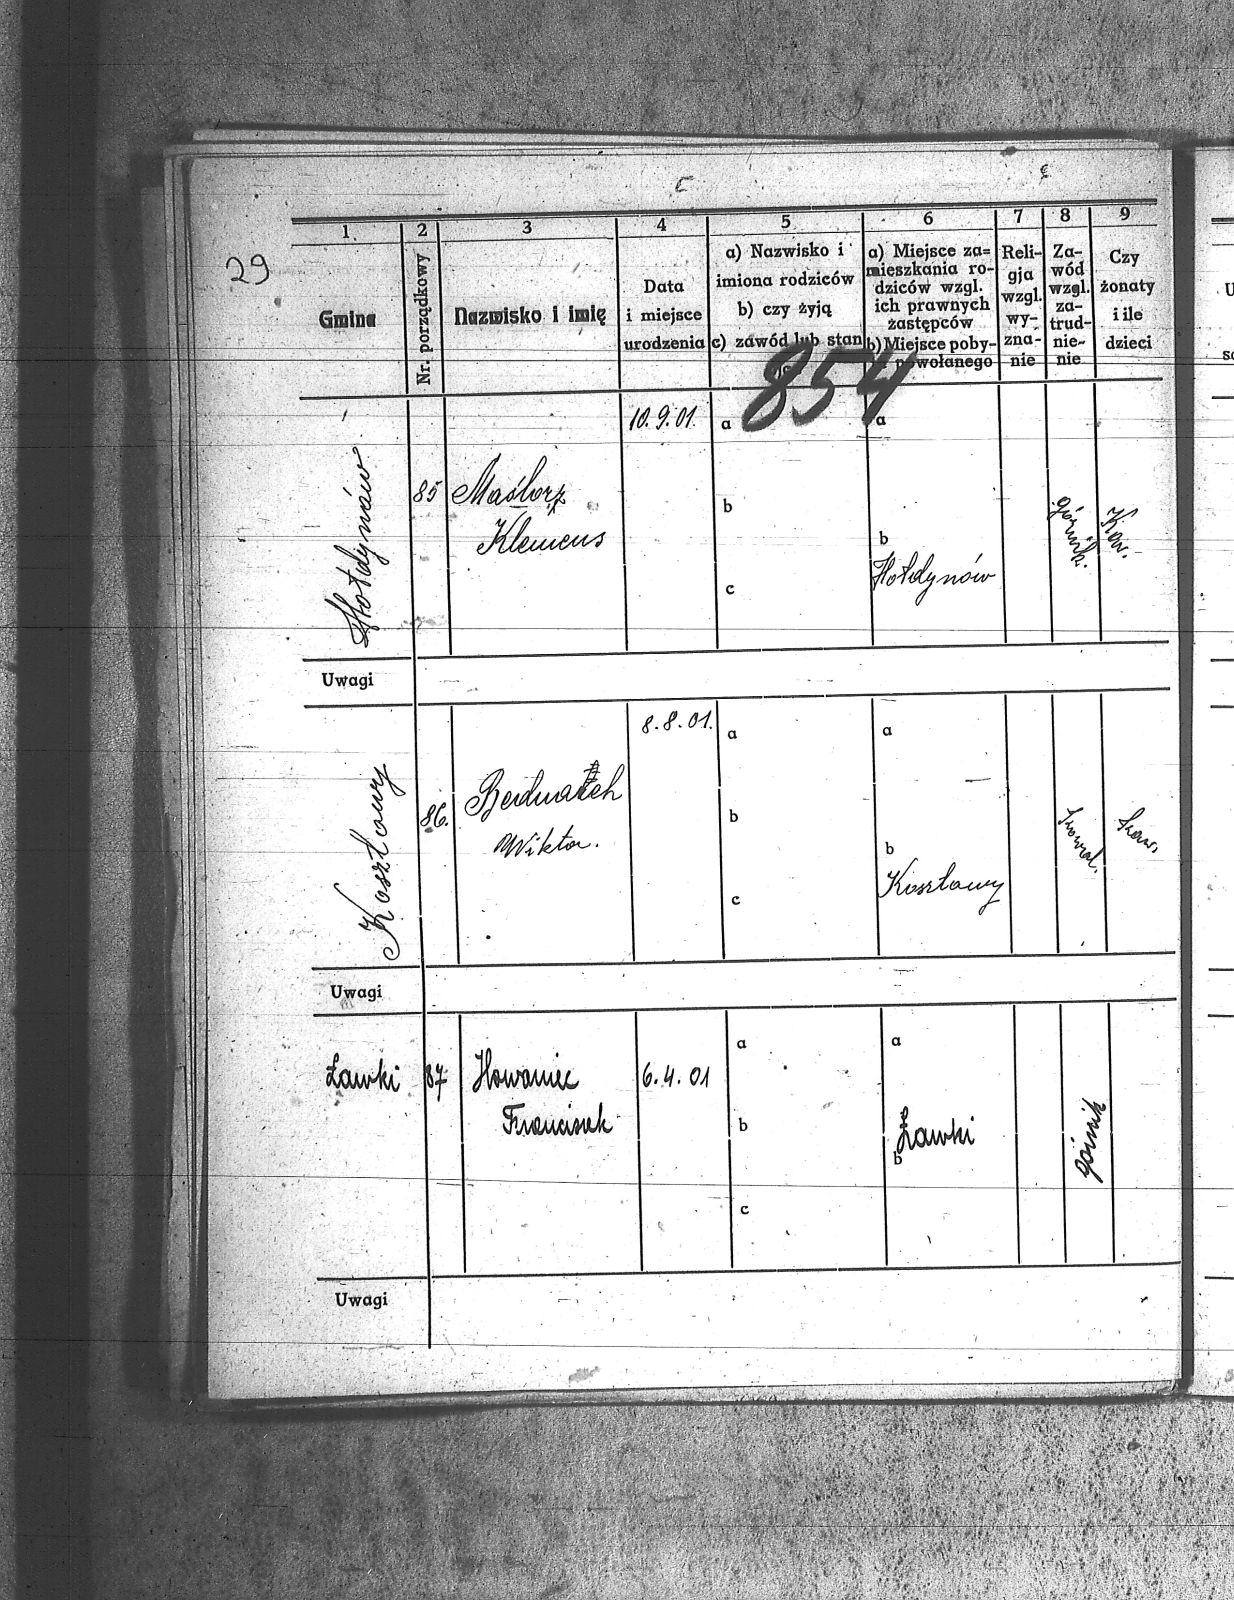 29
1.
2
3
4
5
6
7
8
9
Gmina
Nr. porządkowy
Nazwisko i imię
Data
i miejsce
urodzenia
a) Nazwisko i
imiona rodziców
b) czy żyją
c) zawód lub stan
a) Miejsce za=
mieszkania ro-
dziców wzgl.
ich prawnych
zastępców
b) Miejsce poby-
powołanego
Reli-
gja
wzgl.
wy-
zna-
nie
Za-
wód
wzgl.
za-
trud-
nie-
nie
Czy
żonaty
i ile
dzieci
854
Hołdynów
85
Maślorz
Klemens
10.9.01.
a
b
c
a
b
Hołdynów
górnik.
Kaw.
Uwagi
Kosztowy
86.
Wiktor.
8.8.01.
a
b
c
a
b
Kosztowy
kaw.
Uwagi
Ławki
87
Howaniec
Franciszek
6.4.01
a
b
c
a
Ławki
b
górnik
Uwagi